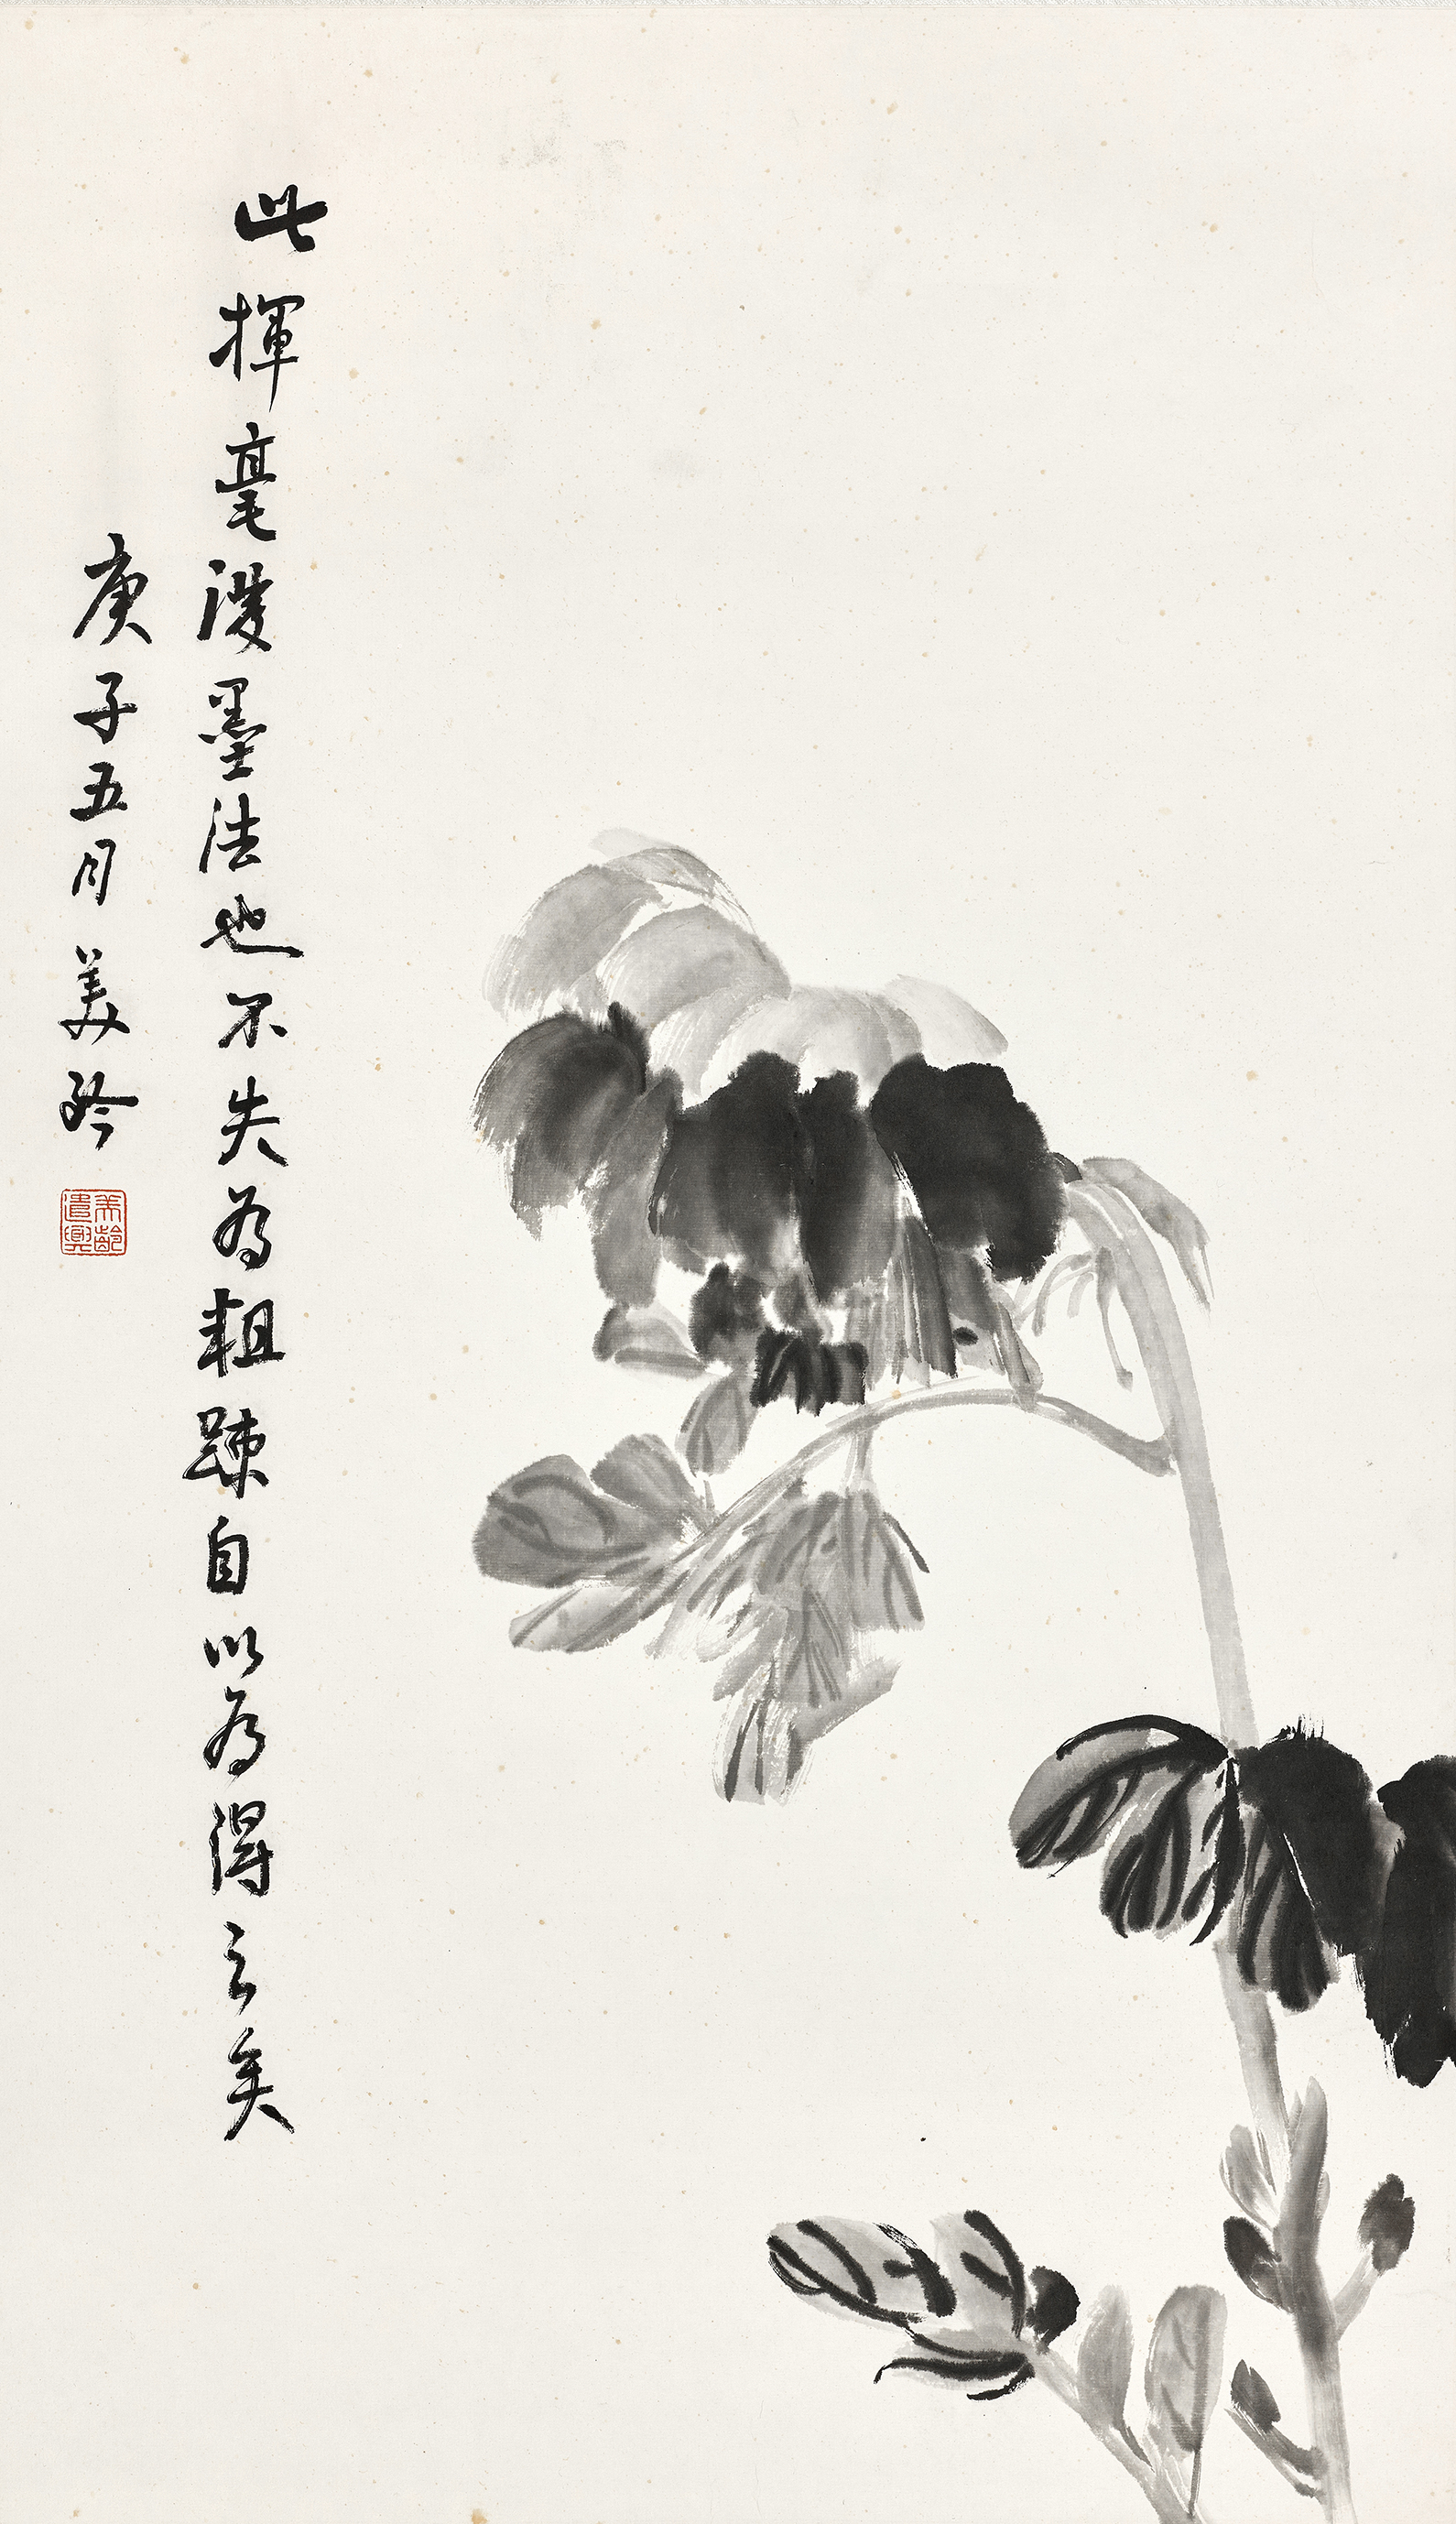 此揮毫潑墨法也不失為粗踈自以為得之矣
庚子五月 美齡
美齡遣興